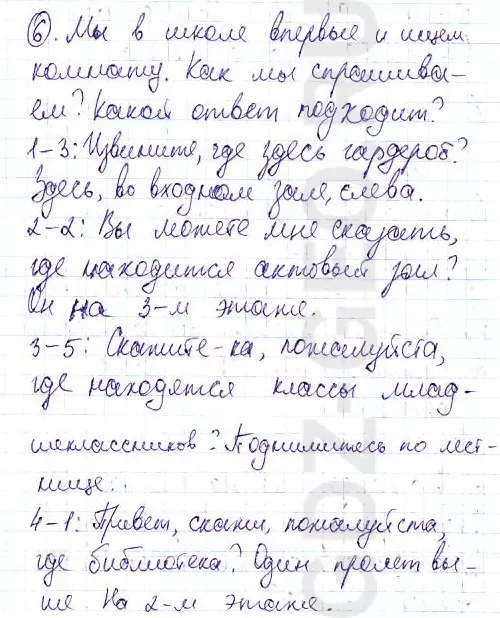 ⑥. Мы в школе впервые и ищем
комнату. Как мы спрашива-
ем? Какой ответ подходит?
1-3: Извините, где здесь гардероб?
Здесь, во входном зале, слева.
2-2: Вы можете мне сказать,
где находится актовый зал?
Он на 3-м этаже.
3-5: Скажите-ка, пожалуйста,
где находятся классы млад-
шеклассников? Поднимитесь по лест-
нице.
4-1: Привет, скажи, пожалуйста,
где библиотека? Один пролет вы-
ше. На 2-м этаже.
GDZ-GEO.RU